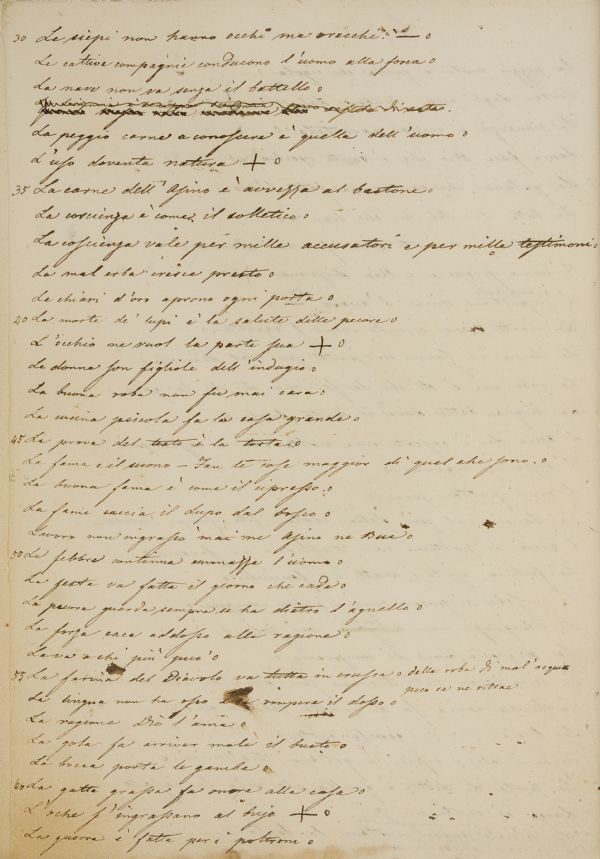 30 Le siepi non hanno occhi ma orecchi. — o
Le cattive compagnie conducono l'uomo alla forca o
La nave non va senza il battello o
di seta.
La peggio carne a conoscere è quella dell'uomo o
L'uso doventa natura + o
35 La carne dell'Asino è avvezza al bastone o
La coscienza è come il solletico o
La coscienza vale per mille accusatori e per mille testimoni o
La mal erba cresce presto o
Le chiavi d'oro aprono ogni porta o
40 La morte de' lupi è la salute delle pecore o
L'occhio ne vuol la parte sua + o
Le donne son figliole dell'indugio o
La buona roba non fu mai cara o
La cucina piccola fa la casa grande o
45 La prova del testo è la torta o
La fama e il suono – Fan le cose maggior di quel che sono. o
La buona fama è come il cipresso. o
La fame caccia il Lupo dal bosco o
Lavoro non ingrassò mai né Asino ne Bue o
50 Le febbre continua ammazza l'uomo o
La festa va fatta il giorno che cade o
La pecora guarda sempre se ha dietro l'agnello o
La forza caca addosso alla ragione o
Lava a chi più può o
55 La farina del Diavolo va tutta in crusca o della roba di mal'acqua
poco ce ne ritrae
La lingua non ha osso rompere il dosso o
La ragione Dio l'ama o
La gola fa arrivar male il busto o
La bocca porta le gambe o
60 La gatta grassa fa onore alla casa o
L'oche s'ingrassano al bujo + o
La guerra è fatta per i poltroni o